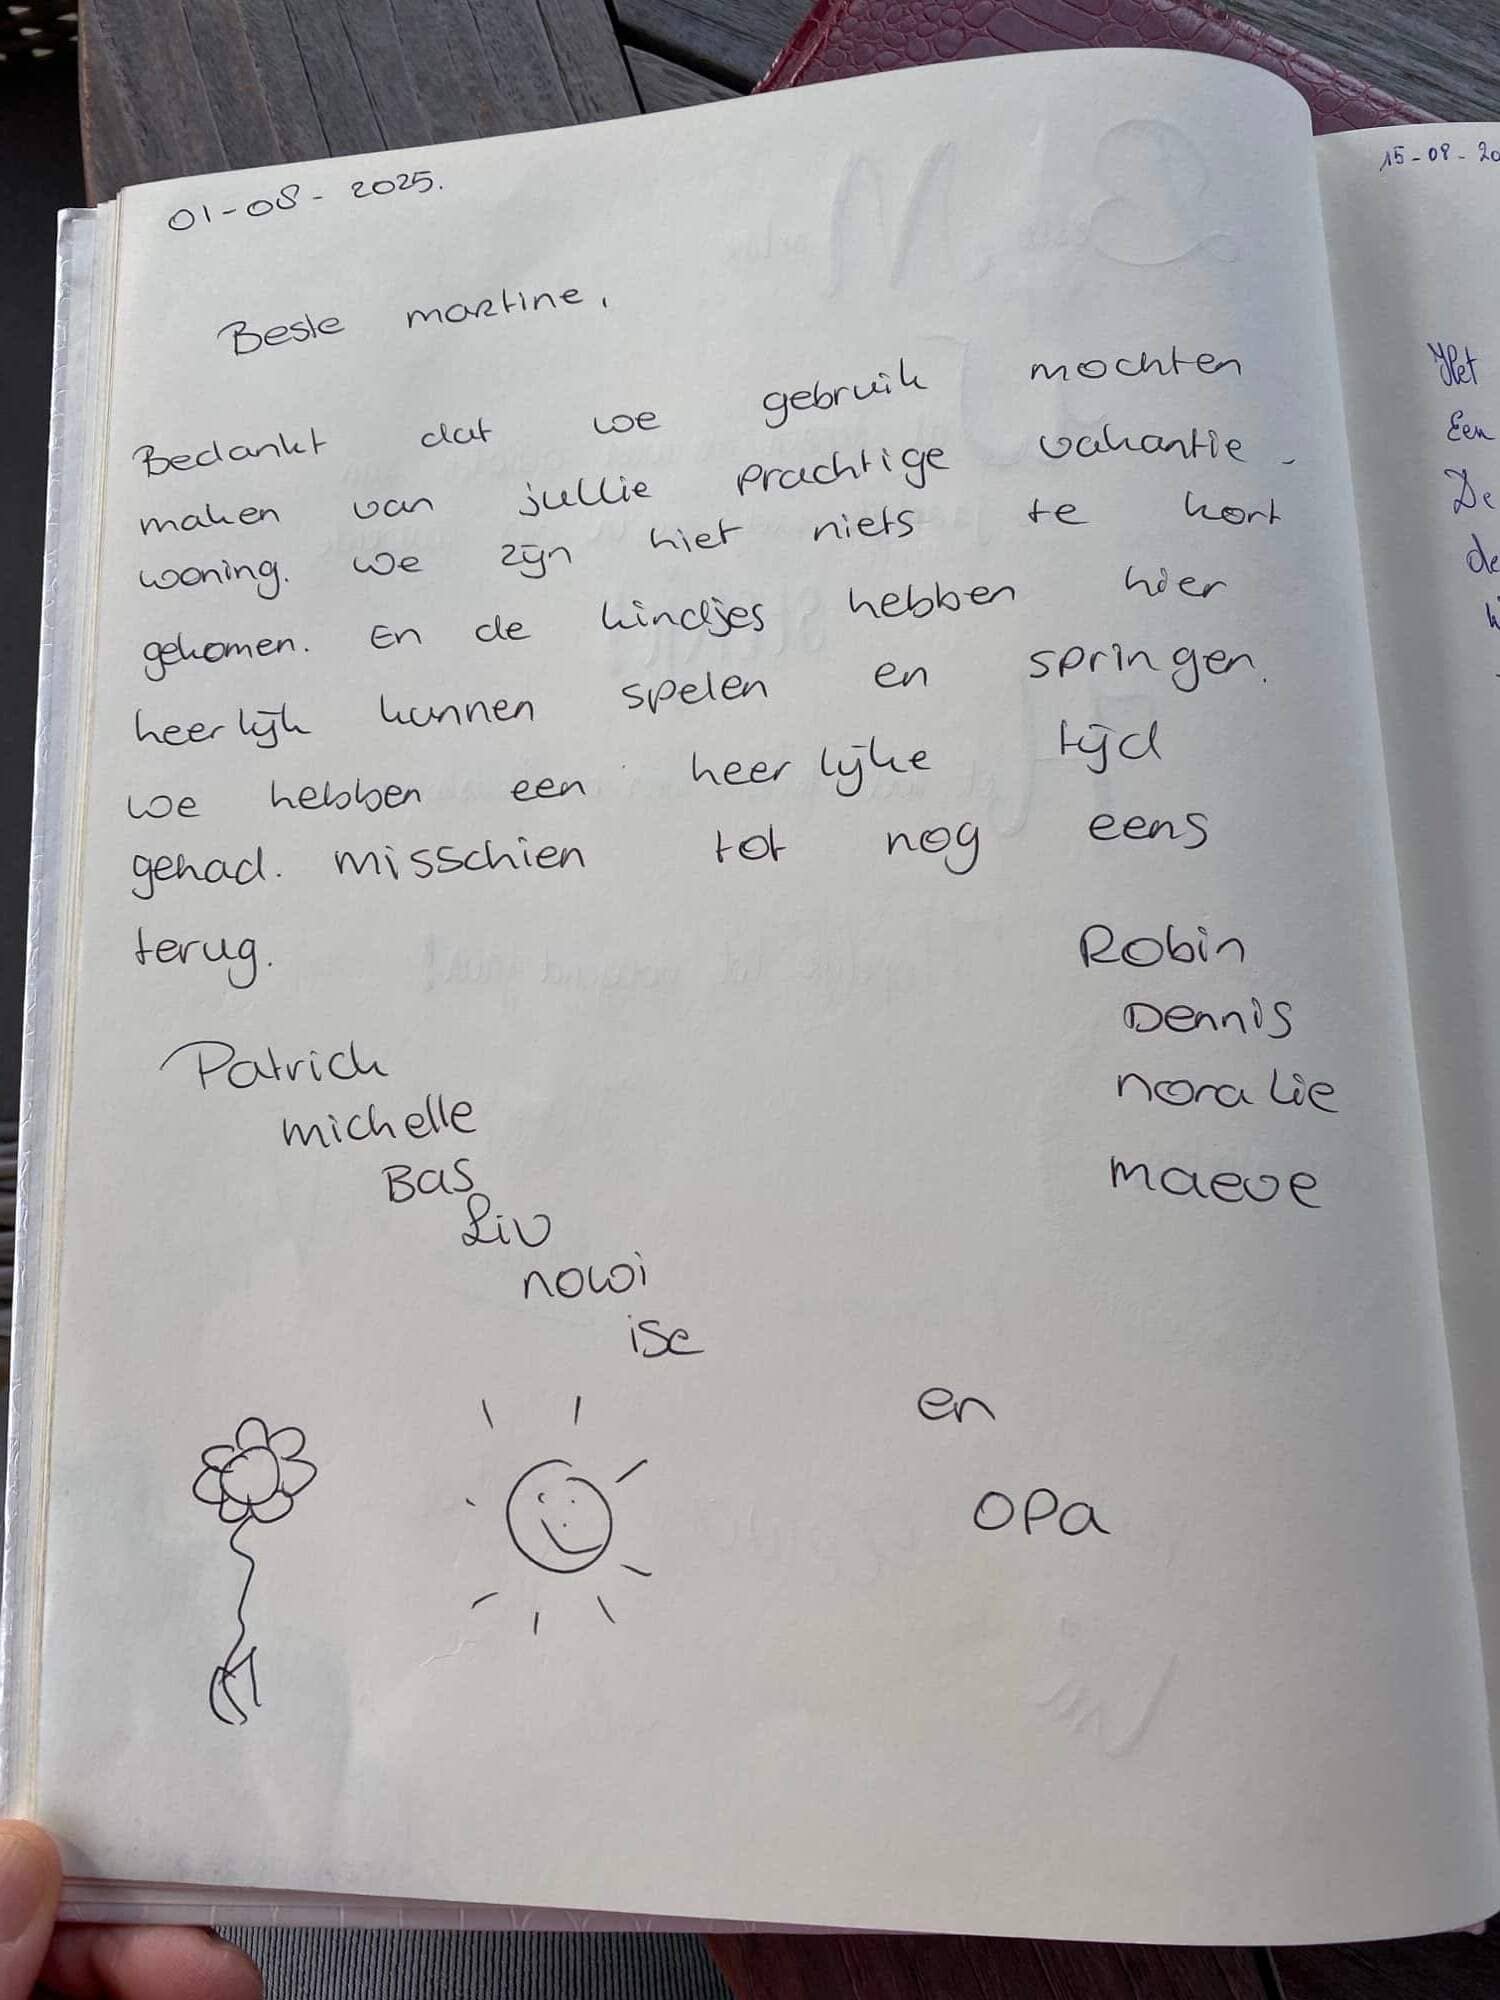 01-08-2025.
Beste martine,
Bedankt dat we gebruik mochten
maken van jullie prachtige vakantie-
woning. We zijn hier niets te kort
gekomen. En de kindjes hebben hier
heerlijk kunnen spelen en springen.
We hebben een heerlijke tijd
gehad. misschien tot nog eens
terug.
Robin
Dennis
noralie
maeve
Patrick
michelle
Bas
Liv
nowi
ise
en
opa
15-08-20
Het
Een
De
de